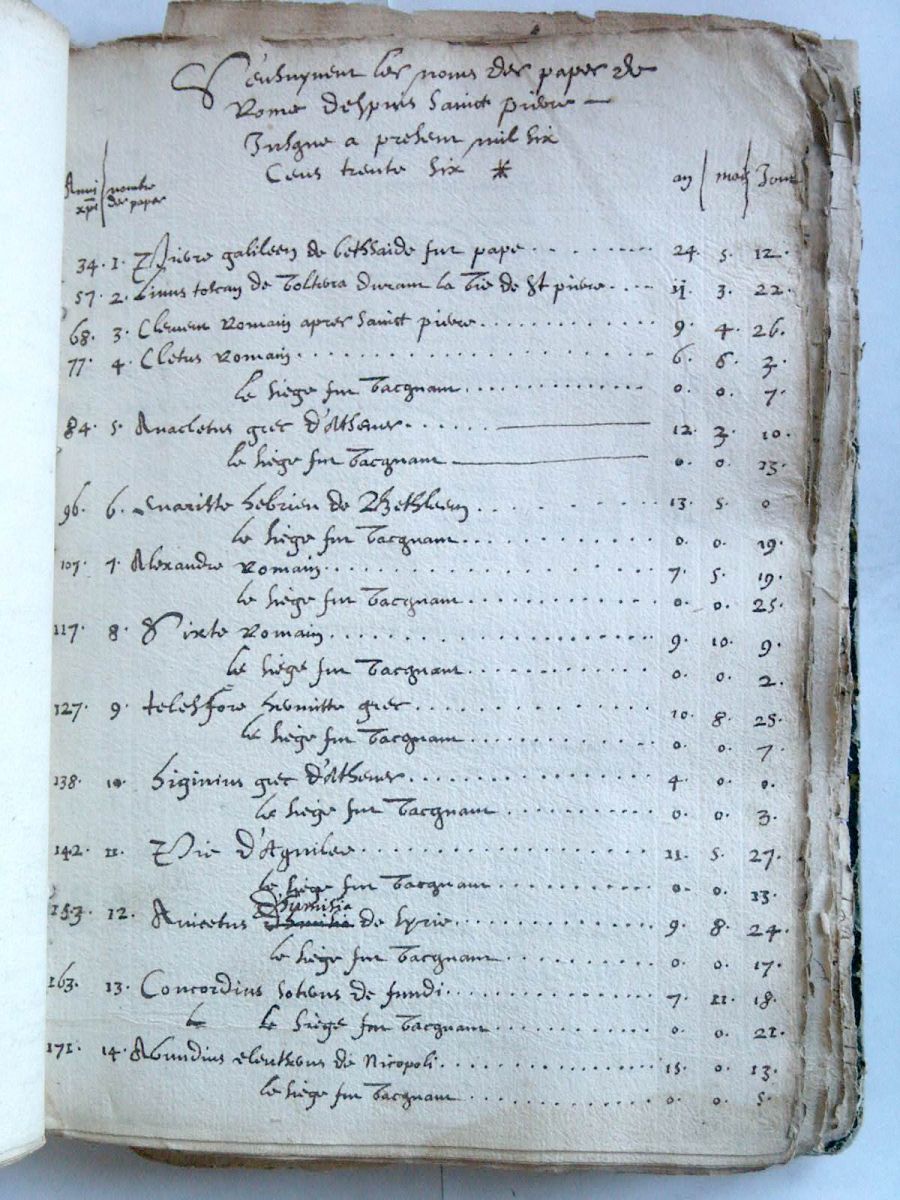 S'ensuyvent les noms des papes de
Rome despuis sainct pierre
Jusque a present mil six
Cens trente six *
Anni nombre an mois Jour
xpi des papes
34. 1. Pierre galileen de bethsaide fut pape 24. 5. 12.
57. 2. Linus toscan de Volterra durant la vie de St pierre 11. 3. 22.
68. 3. Clement Romain apres sainct pierre 9. 4. 26.
77. 4. Cletus Romain 6. 6. 3.
le siege fut vacquant 0. 0. 7.
84. 5. Anacletus grec d'Athenes 12. 3. 10.
le siege fut vacquant 0. 0. 13.
96. 6. Evariste hebrieu de Bethleem 13. 5. 0
le siege fut vacquant 0. 0. 19.
107. 7. Alexandre Romain 7. 5. 19.
le siege fut vacquant 0. 0. 25.
117. 8. Sixte Romain 9. 10. 9.
le siege fut vacquant 0. 0. 2.
127. 9. telesfore hermitte grec 10. 8. 25.
le siege fut vacquant 0. 0. 7.
138. 10. higinius grec d'Athenes 4. 0. 0.
le siege fut vacquant 0. 0. 3.
142. 11. Pie d'Aquilee 11. 5. 27.
le siege fut vacquant 0. 0. 13.
d'humisia
153. 12. Anicetus de syrie 9. 8. 24.
le siege fut vacquant 0. 0. 17.
163. 13. Concordius soterus de fundi 7. 11. 18.
le le siege fut vacquant 0. 0. 21.
171. 14. Abundius eleutherus de Nicopoli 15. 0. 13.
le siege fut vacquant 0. 0. 5.